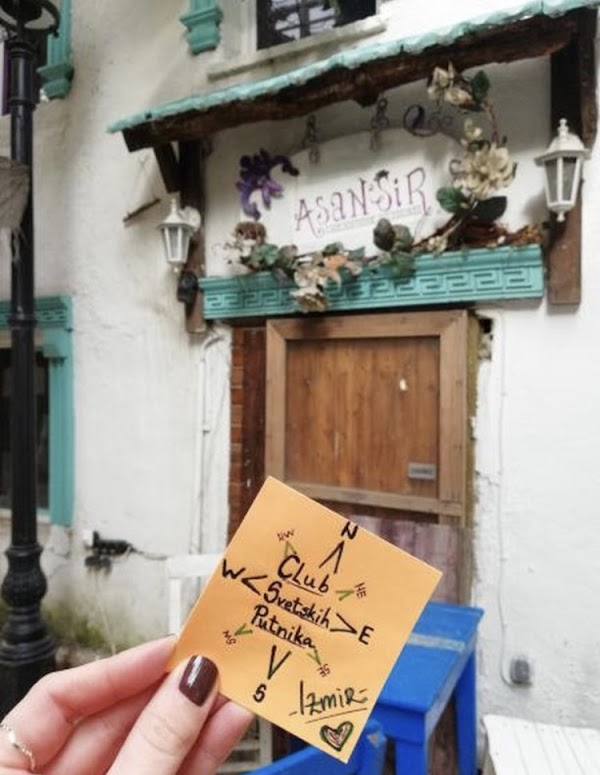 ASANSiR
N
NW
CLub
NE
W
Svetskih
Putnika
E
SW
SE
S
-Izmir-